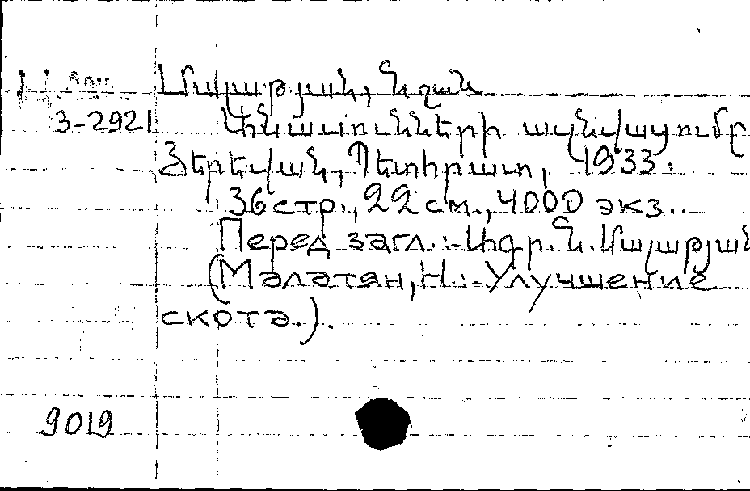 Մալաթյան, Նշան
3-2921 Կենասունների ազնվացումը
Յերեվան, Պետհրատ, 1933.
36 стр., 22 см., 4000 экз.
Перед загл.: Ագր. Ն. Մալաթյան
(Малатян, Н.: Улучшение
скота.).
9019